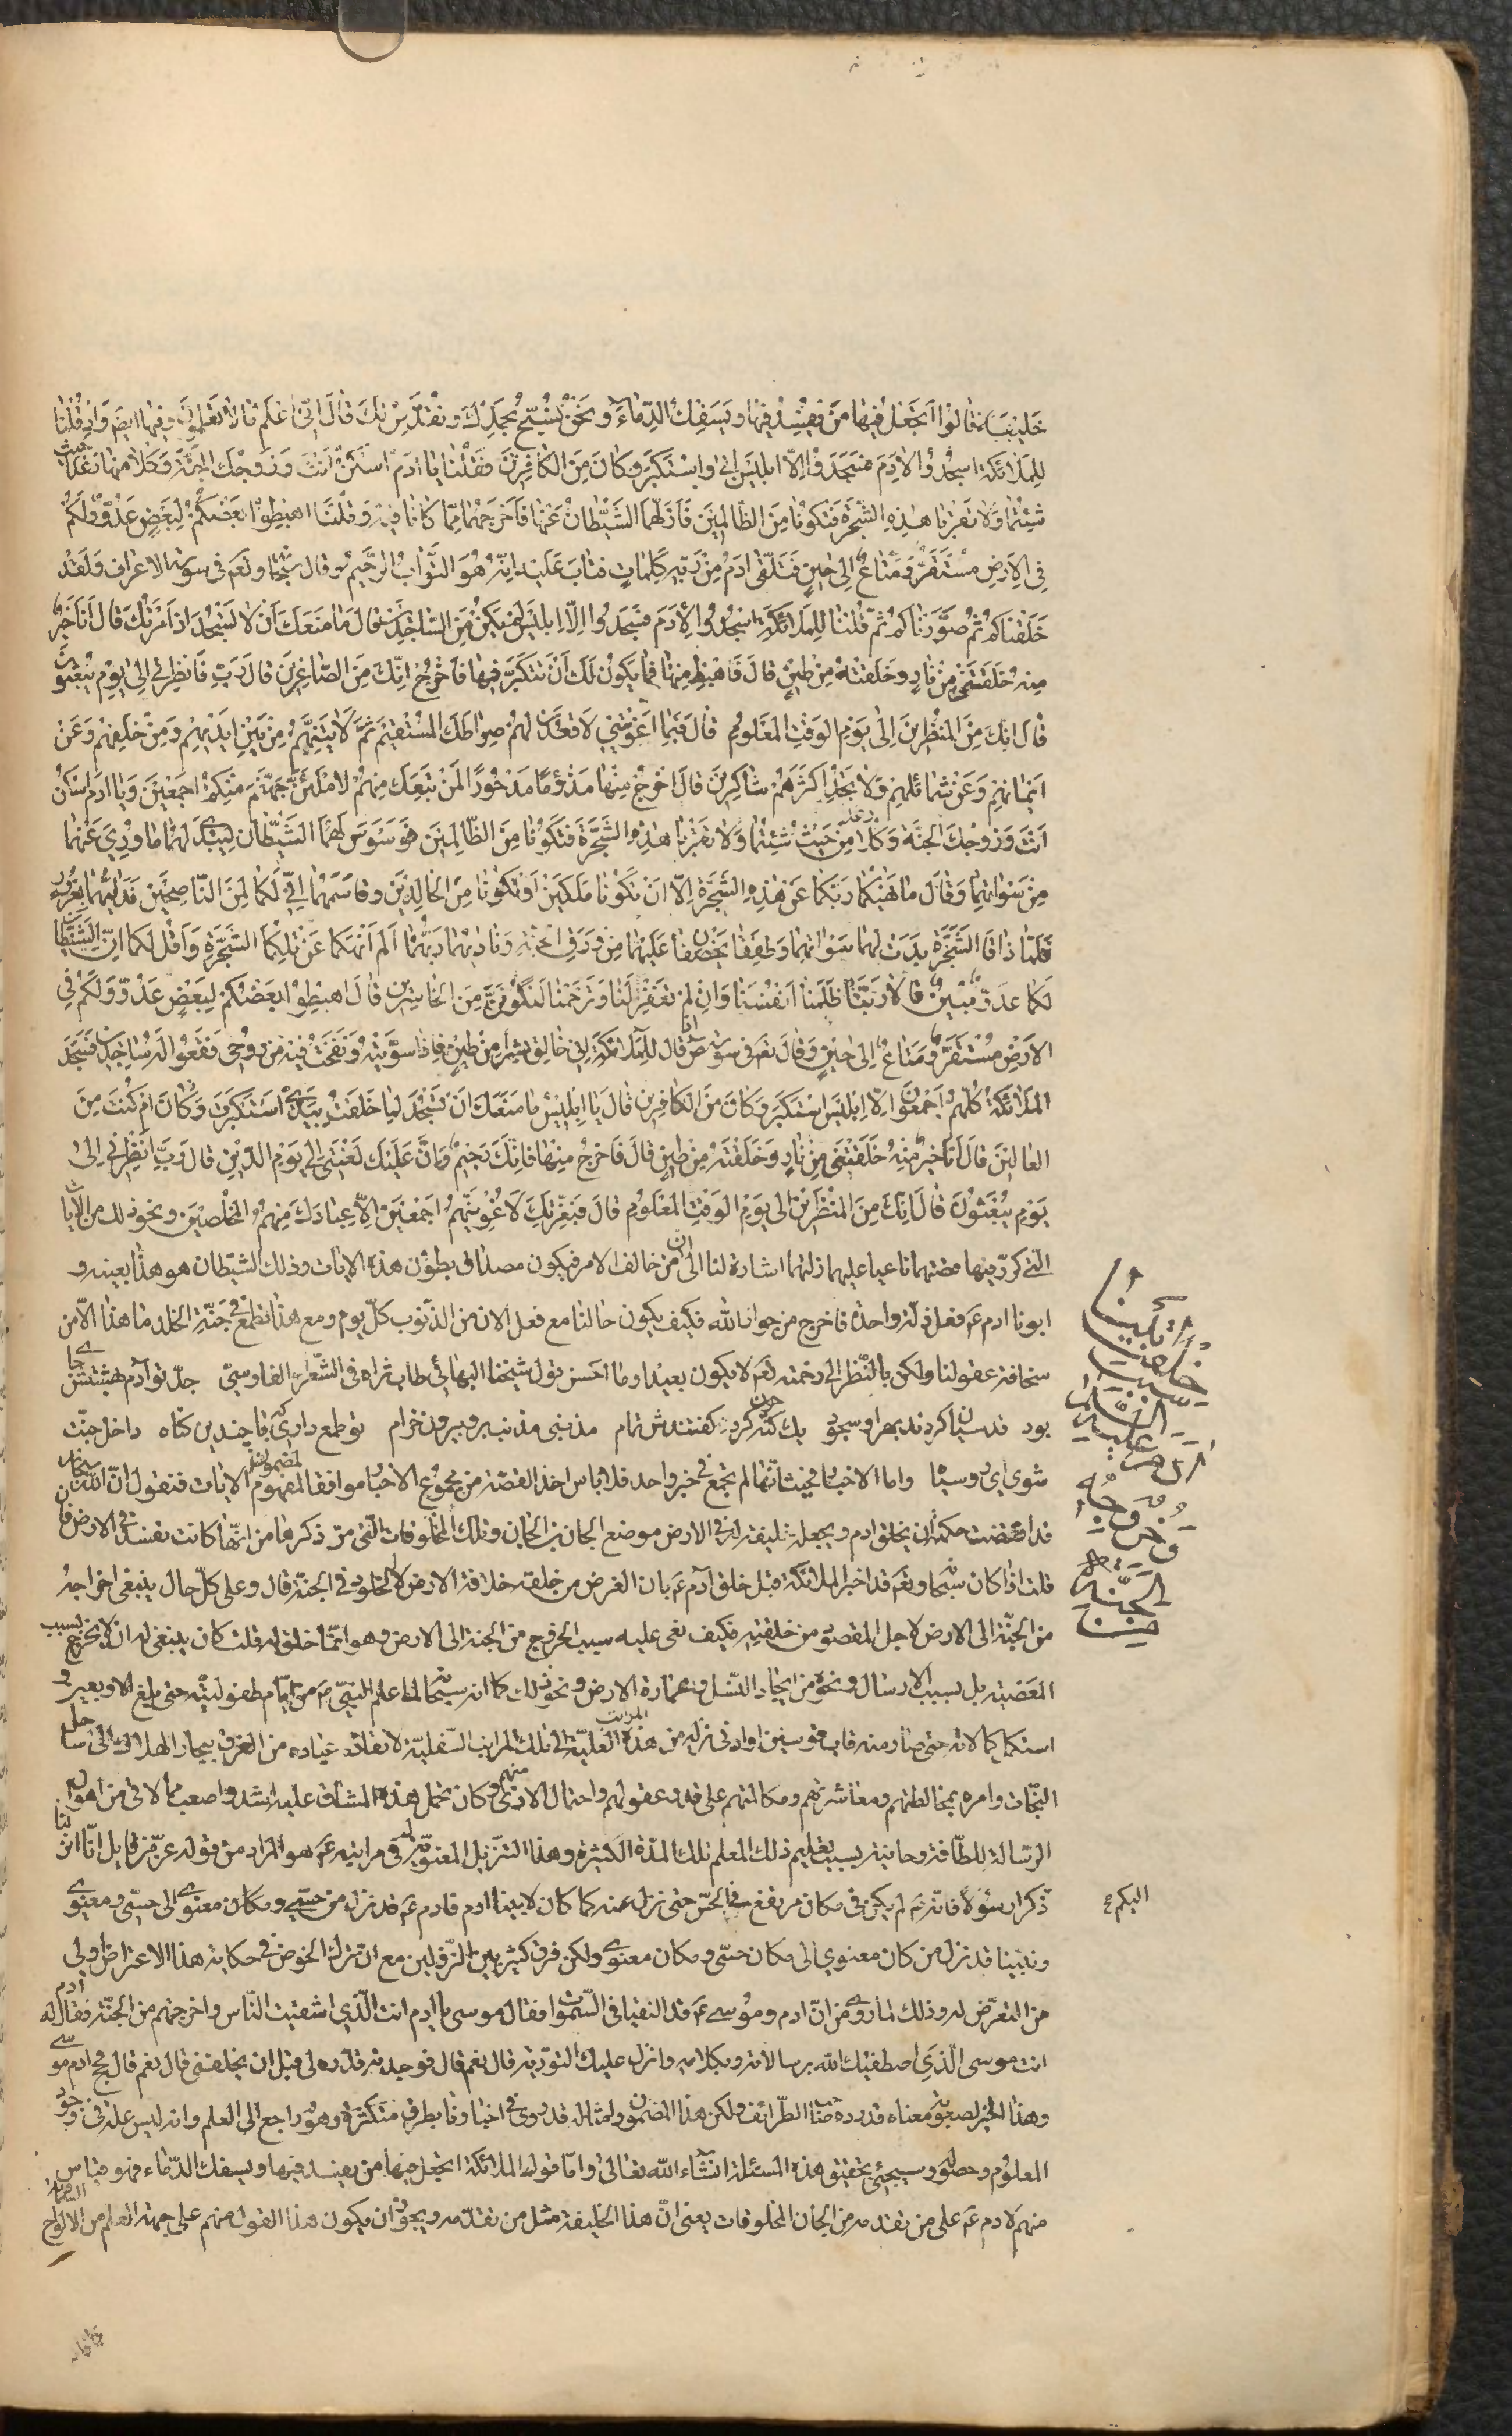 خَليفَة قالُوا اَتَجعَلُ فيها مَن يُفسِدُ فيها ويَسفِكُ الدِّماءَ ونَحنُ نُسَبِّحُ بِحَمدِكَ ونُقَدِّسُ لكَ قالَ اِنّي اَعلَمُ ما لا تَعلَمُونَ وفيها ايضا وَاِذ قُلنا
لِلمَلائكة اسجُدُوا لِادَمَ فَسَجَدُوا اِلّا ابليسَ اَبى واستَكبَرَ وكانَ مِنَ الكافِرينَ وَقُلنا يا ادَمُ اسكُن اَنتَ وَزَوجُكَ الجَنَّةَ وَكُلا مِنها رَغَدا حيث
شِئتُما وَلا تَقرَبا هذِهِ الشَّجَرَةَ فَتَكُونا مِنَ الظّالِمينَ فَاَزَلَّهُما الشَّيطانُ عَنها فَاَخرَجَهُما مِمّا كانا فيهِ وَقُلنَا اهبِطُوا بَعضُكُم لِبَعضٍ عَدُوٌّ وَلَكُم
فِي الاَرضِ مُستَقَرٌّ وَمَتاعٌ اِلى حينٍ فَتَلَقّى ادَمُ مِن رَبِّهِ كَلِماتٍ فَتابَ عَلَيهِ اِنَّهُ هُوَ التَّوّابُ الرَّحيمُ وقال سُبحانه وتَعَ في سورة الاعراف وَلَقَد
خَلَقناكُم ثُمَّ صَوَّرناكُم ثُمَّ قُلنا لِلمَلائكَةِ اسجُدُوا لِادَمَ فَسَجَدُوا اِلّا اِبليسَ لَم يَكُن مِنَ السّاجِدينَ قالَ ما مَنَعَكَ اَن لا تَسجُدَ اِذ اَمَرتُكَ قالَ اَنا خَيرٌ
مِنهُ خَلَقتَني مِن نارٍ وخَلَقتَهُ مِن طينٍ قالَ فَاهبِط مِنها فَما يَكُونُ لَكَ اَن تَتَكَبَّرَ فيها فَاخرُج اِنَّكَ مِنَ الصّاغِرينَ قالَ رَبِّ فَانظِرني اِلى يَومِ يُبعَثُونَ
قالَ اِنَّكَ مِنَ المُنظَرينَ اِلى يَومِ الوَقتِ المَعلُومِ قالَ فَبِما اَغوَيتَني لَاَقعُدَنَّ لَهُم صِراطَكَ المُستَقيمَ ثُمَّ لَاتِيَنَّهُم مِن بَينِ اَيديهِم وَمِن خَلفِهِم وَعَن
اَيمانِهِم وَعَن شَمائِلِهِم وَلا تَجِدُ اَكثَرَهُم شاكِرينَ قالَ اخرُج مِنها مَذؤُمًا مَدحُورًا لَمَن تَبِعَكَ مِنهُم لَاَملَئَنَّ جَهَنَّمَ مِنكُم اَجمَعينَ وَيا ادَمُ اسكُن
اَنتَ وَزَوجُكَ الجَنَّةَ وَكُلا مِن حَيثُ شِئتُما وَلا تَقرَبا هذِهِ الشَّجَرَةَ فَتَكُونا مِنَ الظّالِمينَ فَوَسوَسَ لَهُما الشَّيطانُ لِيُبدِيَ لَهُما ما وُرِيَ عَنهُما
مِن سَوآتِهِما وَقالَ ما نَهيكُما رَبُّكُما عَن هذِهِ الشَّجَرَةِ اِلّا اَن تَكُونا مَلَكَينِ اَو تَكُونا مِنَ الخالِدينَ وقاسَمَهُما اِنّي لَكُما لَمِنَ النّاصِحينَ فَدَلّيهُما بِغُرُورٍ
فَلَمّا ذاقَا الشَّجَرَةَ بَدَت لَهُما سَوآتُهُما وَطَفِقا يَخصِفانِ عَلَيهِما مِن وَرَقِ الجَنَّةِ وَناديهُما رَبُّهُما اَلَم اَنهَكُما عَن تِلكُمَا الشَّجَرَةِ وَاَقُل لَكُما اِنَّ الشَّيطانَ
لَكُما عَدُوٌّ مُبينٌ قالا رَبَّنا ظَلَمنا اَنفُسَنا وَاِن لَم تَغفِر لَنا وَتَرحَمنا لَنَكُونَنَّ مِنَ الخاسِرينَ قالَ اهبِطُوا بَعضُكُم لِبَعضٍ عَدُوٌّ وَلَكُم فِي
الاَرضِ مُستَقَرٌّ وَمَتاعٌ اِلى حينٍ وَقالَ تعَ في سورة ص اذ قالَ للمَلائكَةِ اِنّي خالِقٌ بَشَرًا مِن طينٍ فَاِذا سَوَّيتُهُ وَنَفَختُ فيهِ مِن رُوحي فَقَعُوا لَهُ ساجِدينَ فَسَجَدَ
المَلائكَةُ كُلُّهُم اَجمَعُونَ اِلّا اِبليسَ استَكبَرَ وَكانَ مِنَ الكافِرينَ قالَ يا اِبليسُ ما مَنَعَكَ اَن تَسجُدَ لِما خَلَقتُ بِيَدَيَّ اَستَكبَرتَ اَم كُنتَ مِنَ
العالينَ قالَ اَنا خَيرٌ مِنهُ خَلَقتَني مِن نارٍ وَخَلَقتَهُ مِن طينٍ قالَ فَاخرُج مِنها فَاِنَّكَ رَجيمٌ وَاِنَّ عَلَيكَ لَعنَتي اِلى يَومِ الدّينِ قالَ رَبِّ اَنظِرني اِلى
يَومِ يُبعَثُونَ قالَ اِنَّكَ مِنَ المُنظَرينَ اِلى يَومِ الوَقتِ المَعلُومِ قالَ فَبِعِزَّتِكَ لَاُغوِيَنَّهُم اَجمَعينَ اِلّا عِبادَكَ مِنهُمُ المُخلَصينَ ونحو ذلك من الايات
الّتي كرّر فيها قصتهما ناعيا عليهما زلتهما اشارة لنا الى ان من خالف الامر فيكون مصداق بطون هذه الايات وذلك الشيطان هو هذا بعينه و
ابونا ادم عَ فعل زلة واحدة فاخرج من جوار الله فكيف يكون حالنا مع فعل الان من الذنوب كلّ يوم ومع هذا نطمع في جَنّةِ الخلد ما هذا الّا من
سخافة عقولنا ولكن بالنظر الى رحمته تعَ لا يكون بعيدا وما احسن قول شيخنا البهائي طاب ثراه في الشّعر الفارسيّ جدّ تو آدم بهشتش جاى
بود قدسيان كردند بهر او سجود يك كنه چون كرد گفتندش تمام مذنبى مذنب برو بيرون خرام تو طمع دارى كه با چندين گناه داخل جنّت
شوى اى رو سياه واما الاخبار فحيث انّها لم تجمع في خبر واحد فلا باس اخذ القصة من مجموع الاخبار موافقا لمفهوم الايات فنقول انّ الله سبحانه
قد اقتضت حكمته ان يخلق ادم ويجعله خليفة له في الارض موضع الجان بن الجان وتلك المخلوقات الّتي مرّ ذكرها من انّها كانت تفسد في الارض فان
قلت اذا كان سبحانه وتعَ قد اخبر الملائكة قبل خلق آدم عَ بان الغرض من خلقه خلافة الارض لا الخلود في الجنة قال وعلى كلّ حال ينبغى اخراجه
من الجنّة الى الارض لاجل المقصود من خلقته فكيف نعى عليه سبب الخروج من الجنة الى الارض وهو انّما خلق له قلت كان ينبغي له ان لا يخرج بسبب
المعَصية بل بسبب الارسال ونحوه من ايجاد النّسل وعمارة الارض ونحو ذلك كما انه سبحانه لما علم النّبيّ صَ من ايّام طفوليّته حتى بلغ الاربعين في
استكمال كمالاته حتى صار منه قاب قوسين او ادنى نزله من هذه المراتب العليّة الى تلك المراتب السّفليّة لانقاذ عباده من الغرق ببحار الهلاك الى ساحل
النّجات وامره بمخالطتهم ومعاشرتهم ومكالمتهم على قدر عقولهم واحتمال الاذى منهم وكان تحمل هذه المشاق عليه اشد واصعب ما لاقى من اهوال
الرّسالة للطافة روحانيته بسبب تعليم ذلك المعلم تلك المدّة الكثيرة وهذا التّنزيل المعنويّ له في مراتبه عَ هو المراد من قوله عزّ من قايل انّا انزلنا
اليكم ذكرا رسولا فانّه عَ لم يكن في مكان مرتفع في الحسّ حتى نزل عنه كما كان لابينا ادم فادم عَ قد نزل من حسّي ومكان معنوي الى حسّي ومعنوي
ونبيّنا قد نزل من كان معنوي الى مكان حسّي ومكان معنوي ولكن فرق كثير بين النّزولين مع ان ترك الخوض في حكاية هذا الاعتراض اولى
من التعرّض له وذلك لما روى من انّ ادم وموسى عَ قد التقيا في السّموات فقال موسى يا ادم انت الّذي اشقيت النّاس واخرجتهم من الجنّة فقال له ادم
انت موسى الّذي اصطفيك الله برسالاته وبكلامه وانزل عليك التورية قال نعم قال فوجدته قدّره لي قبل ان يخلقني قال نعم قال فحج ادم موسى
وهذا الخبر لصعوبة معناه قد رده صاحب الطّرائف ولكن هذا المضمون وامثاله قد روي في اخبارنا بطرق متكثرة وهو راجع الى العلم وانه ليس علة في وجود
المعلوم وحصوله وسيجئ تحقيق هذه المسئلة انشاء الله تعالى وامّا قول الملائكة اتجعل فيها من يفسد فيها ويسفك الدّماء فهو قياس
منهم لادم عَ على من تقدمه من الجان المخلوقات يعنى انّ هذا الخليفة مثل من تقدّمه ويجوز ان يكون هذا القول منهم على جهة العلم من الالواح السماوية